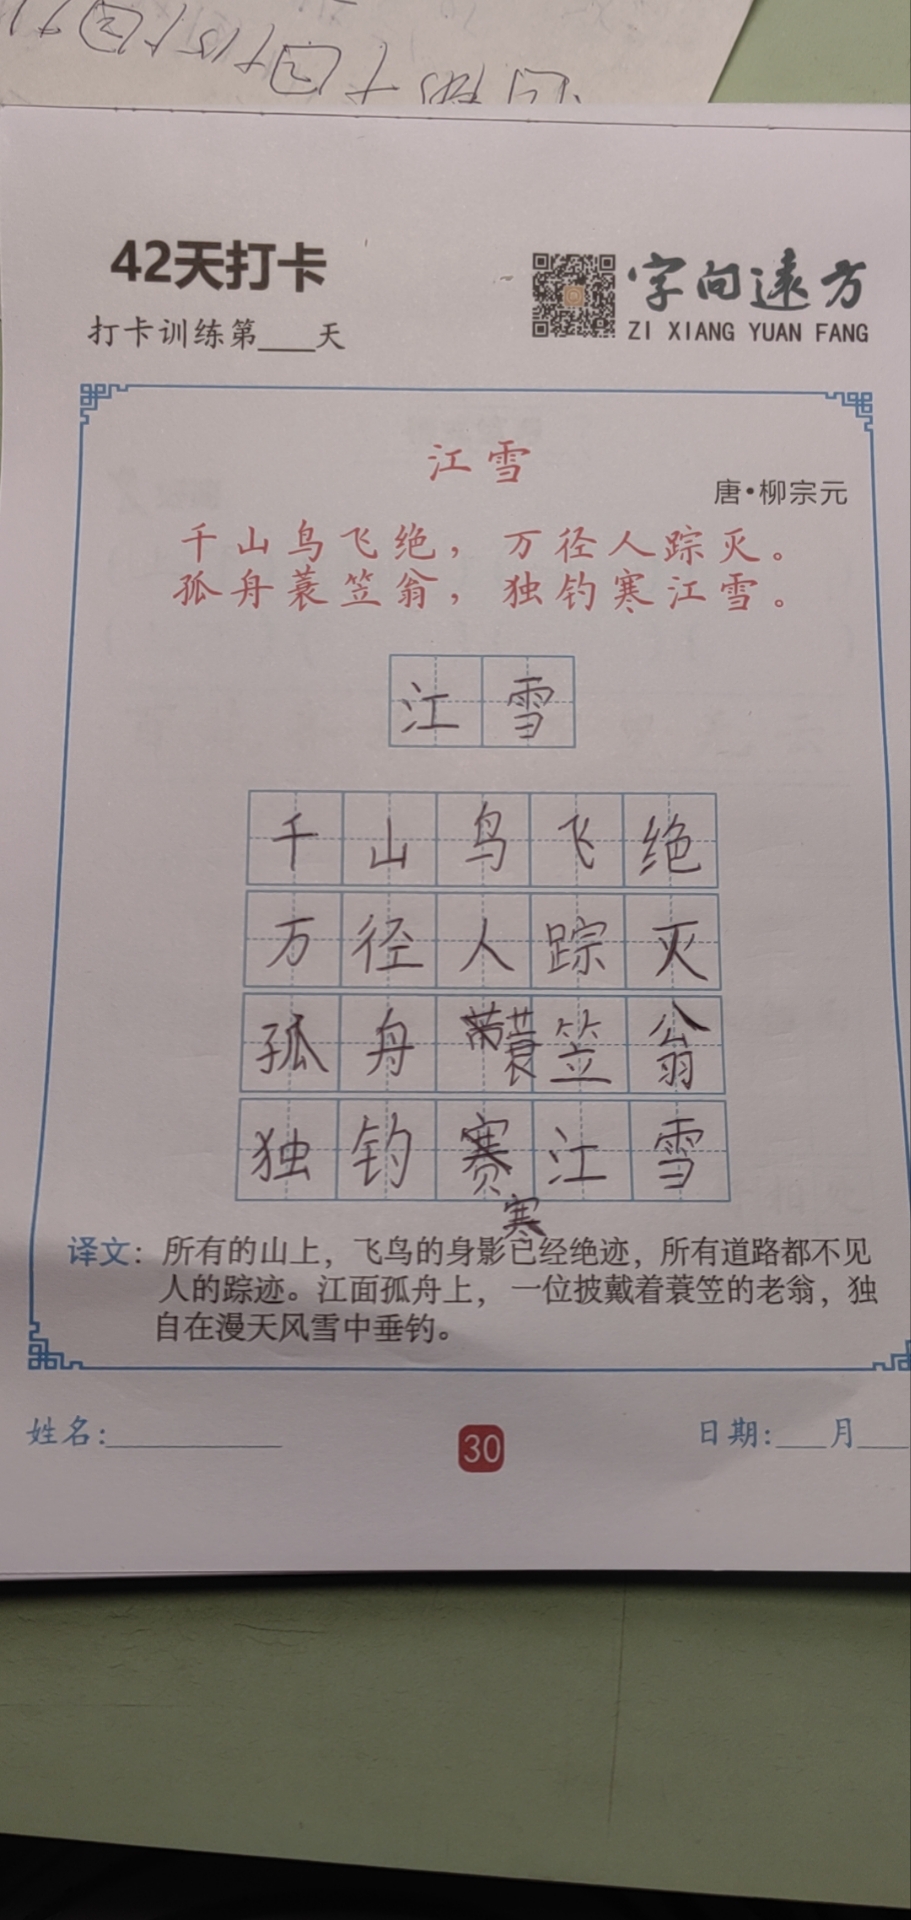 42天打卡
打卡训练第___天
字向遠方
ZI XIANG YUAN FANG
江雪
唐·柳宗元
千山鸟飞绝，万径人踪灭。
孤舟蓑笠翁，独钓寒江雪。
江雪
千山鸟飞绝
万径人踪灭
孤舟蓑笠翁
独钓赛江雪
寒
译文：所有的山上，飞鸟的身影已经绝迹，所有道路都不见
人的踪迹。江面孤舟上，一位披戴着蓑笠的老翁，独
自在漫天风雪中垂钓。
姓名：
30
日期：___月___